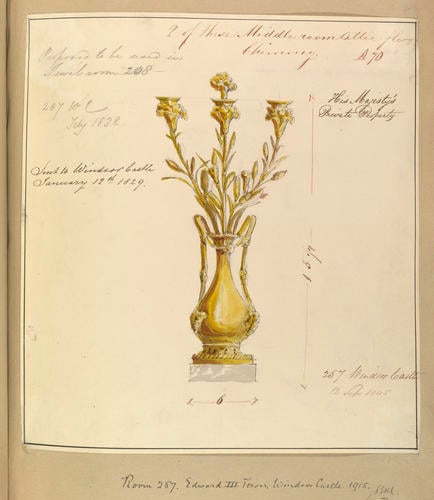 2 of these Middle room
Chimney. A 70
Proposed to be used in
Jewel room 208 -
257 W C
Feby 1838
His Majesty's
Private Property
Sent to Windsor Castle
January 12th 1829.
1 5 ½
6
257 Windsor Castle
Room 257. Edward III Tower, Windsor Castle. 1915.